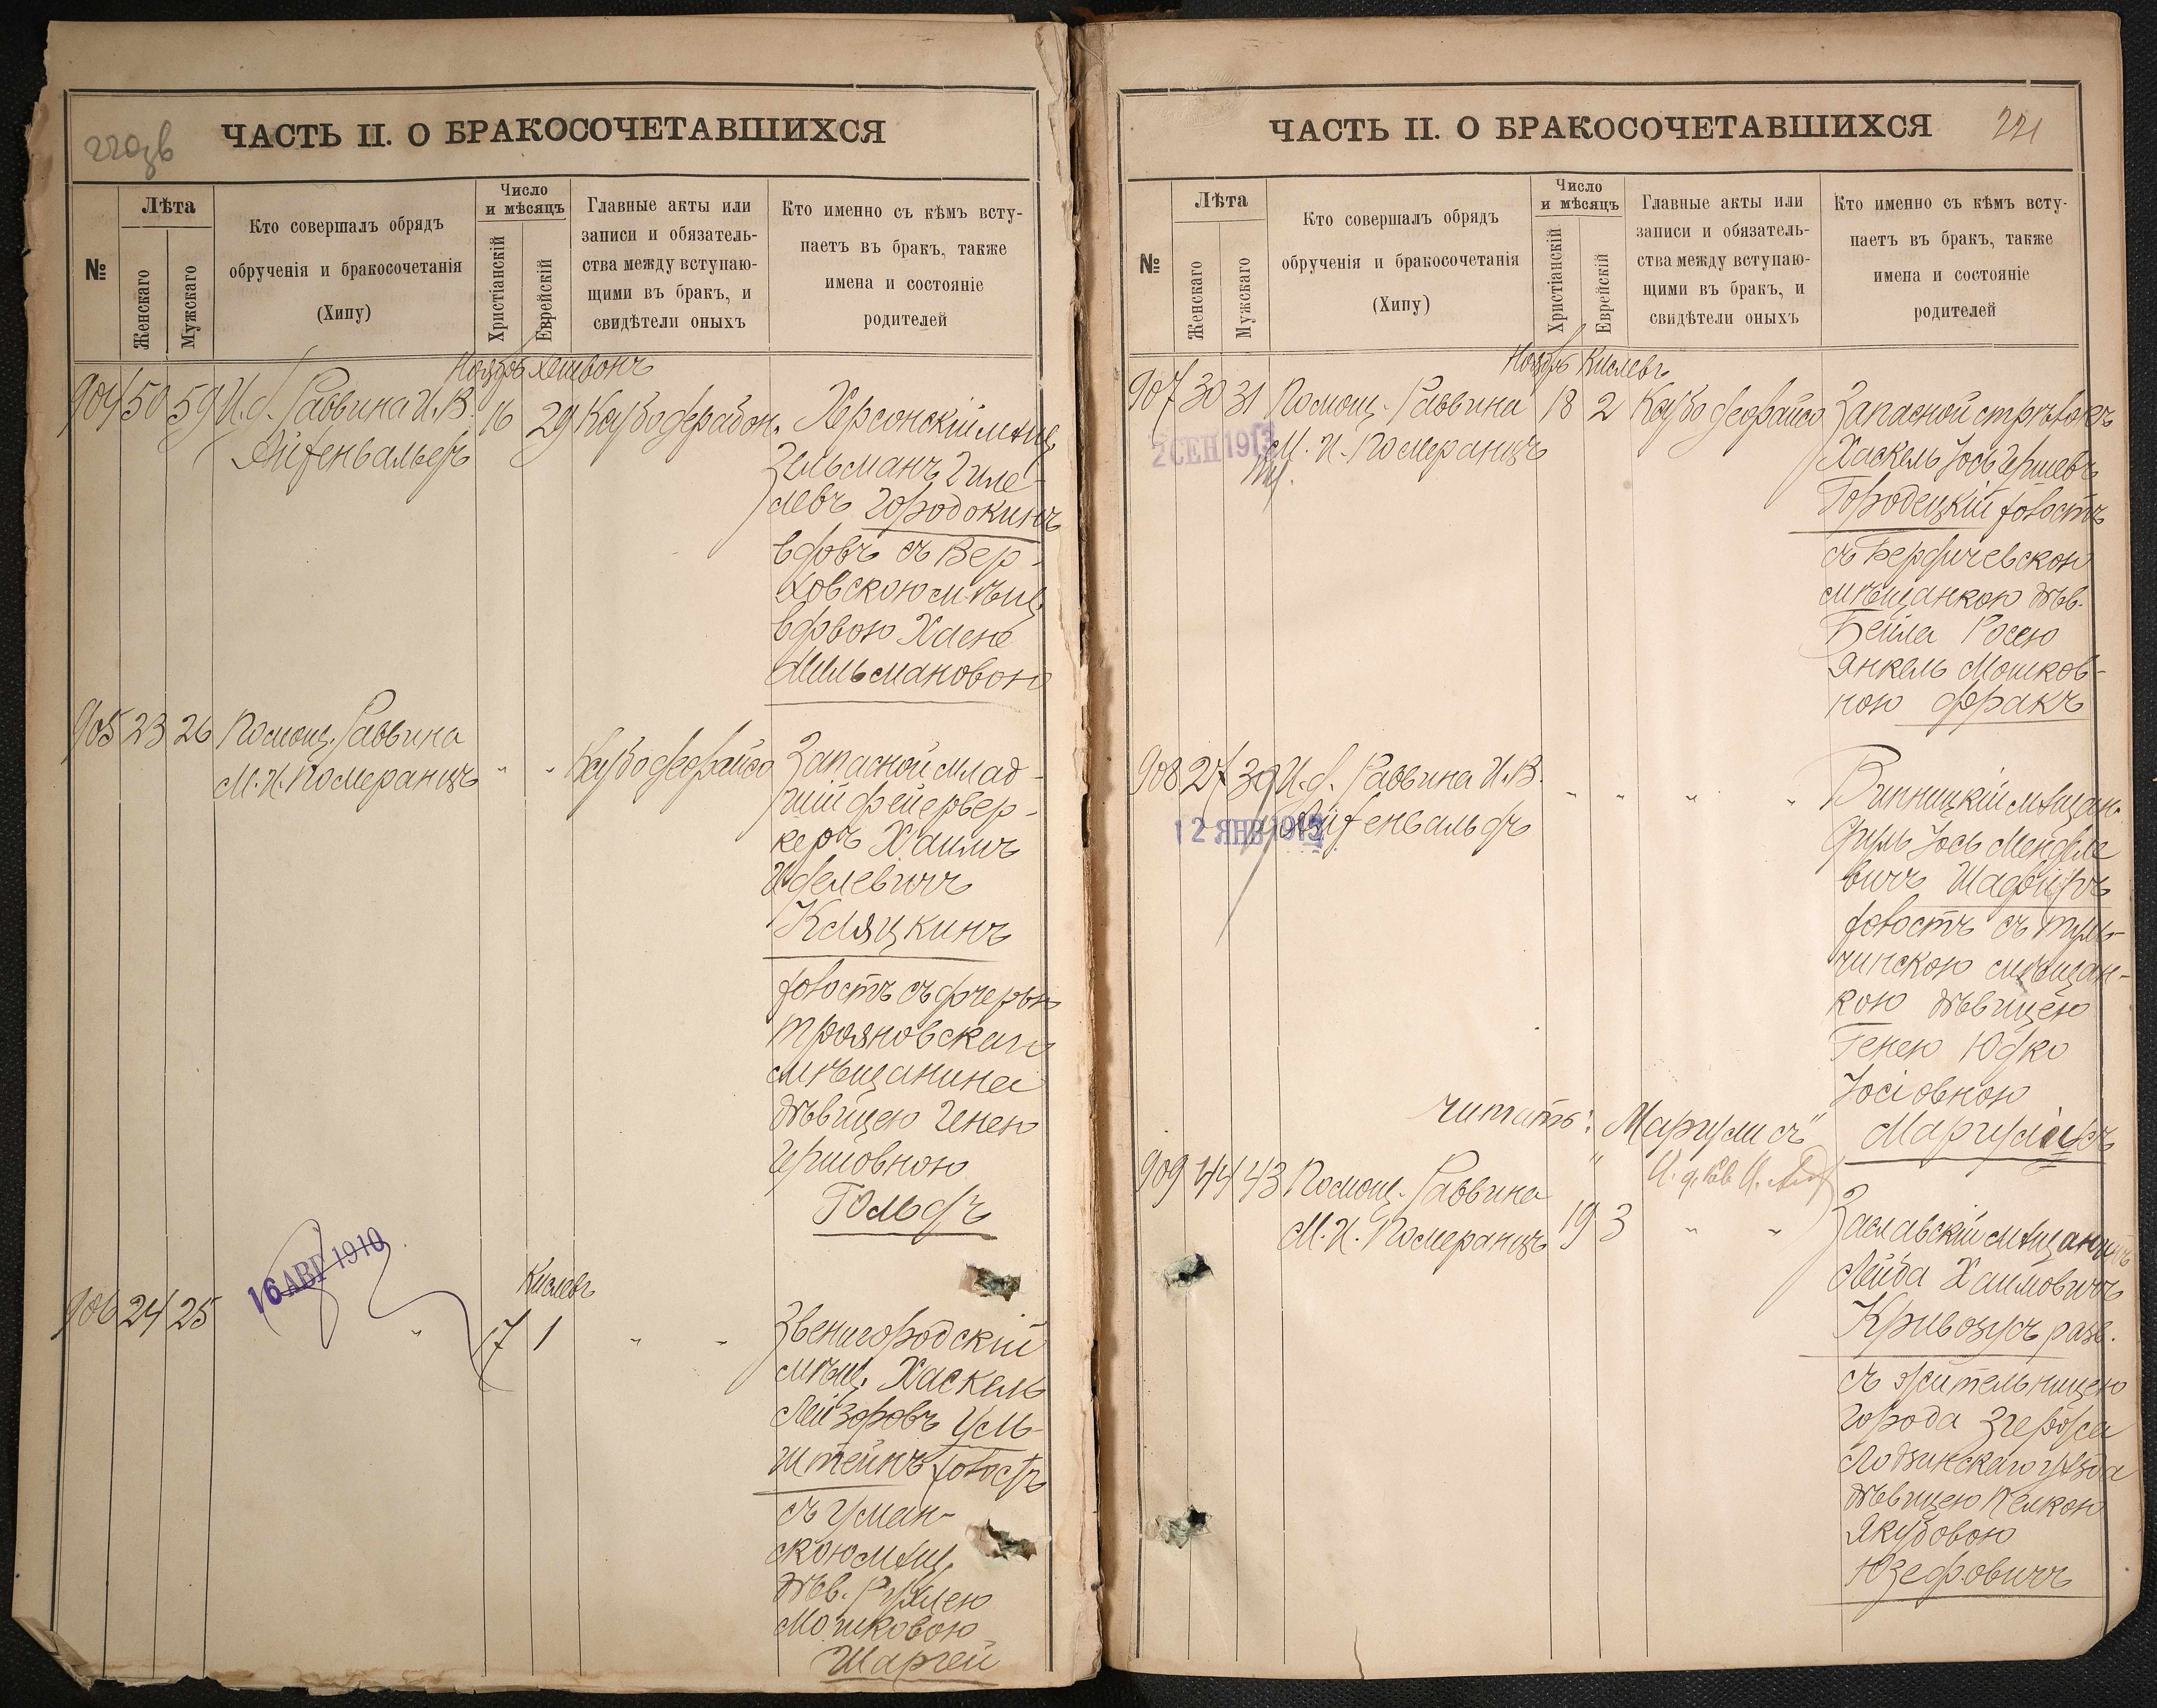 220зв
ЧАСТЬ II. О БРАКОСОЧЕТАВШИХСЯ
№
Лѣта
Женскаго
Мужскаго
Кто совершалъ обрядъ
обрученія и бракосочетанія
(Хипу)
Число
и мѣсяцъ
Христіанскій
Еврейскій
Главные акты или
записи и обязатель-
ства между вступаю-
щими въ бракъ, и
свидѣтели оныхъ
Кто именно съ кѣмъ всту-
паетъ въ бракъ, также
имена и состояніе
родителей
Ноябрь Хешвонъ
904 50 59 И. д. Раввина И. В. 16 29
Айзенвальдъ
Херсонскій мѣщ.
Зельманъ Гиле-
левъ Городокинъ
вдовъ съ Вер-
ховскою мѣщ.
вдовою Хасне
Мильмановою
905 23 26 Помощ. Раввина
М. И. Померанцъ " "
Запасной млад-
шій фейервер-
керъ Хаимъ
Иделевичъ
Кляцкинъ
холостъ съ дочерью
Трояновскаго
мѣщанина
дѣвицею Генею
Гершовною
Гольдъ
16 АВГ 1910
Кислевъ
906 24 25 " 17 1 " "
Звенигородскій
мѣщ. Хаскель
Лейзоровъ Уль-
штейнъ холостъ
съ Уман-
скою мѣщ.
дѣв. Рухлею
Мошковою
Шаргей
ЧАСТЬ II. О БРАКОСОЧЕТАВШИХСЯ
221
№
Лѣта
Женскаго
Мужскаго
Кто совершалъ обрядъ
обрученія и бракосочетанія
(Хипу)
Число
и мѣсяцъ
Христіанскій
Еврейскій
Главные акты или
записи и обязатель-
ства между вступаю-
щими въ бракъ, и
свидѣтели оныхъ
Кто именно съ кѣмъ всту-
паетъ въ бракъ, также
имена и состояніе
родителей
Ноябрь Кислевъ
907 30 31 Помощ. Раввина 18 2
М. И. Померанцъ
2 СЕН 1913
Запасной стрѣлокъ
Хаскель Іось Гершевъ
Городецкій холостъ
съ Бердичевскою
мѣщанкою дѣв.
Бейла Росею
Янкель Мошков-
ною Фракъ
908 27 39 И. д. Раввина И. В. " " " "
Айзенвальдъ
12 ЯНВ
Винницкій мѣщан.
Іось Менделе
вичъ Шафиръ
холостъ съ Туль-
чинскою мѣщан-
кою дѣвицею
Генею Юдко
Іосіовною
Маргулисъ
читать: "Маргулисъ"
И. д. Рав.
909 44 43 Помощ. Раввина "
М. И. Померанцъ 19 3 " "
Заславскій мѣщанинъ
Лейба Хаимовичъ
Кривозусъ разв.
съ жительницею
города Згержа
Лодзинскаго уѣзда
дѣвицею Пелкою
Якубовою
Юзефовичъ